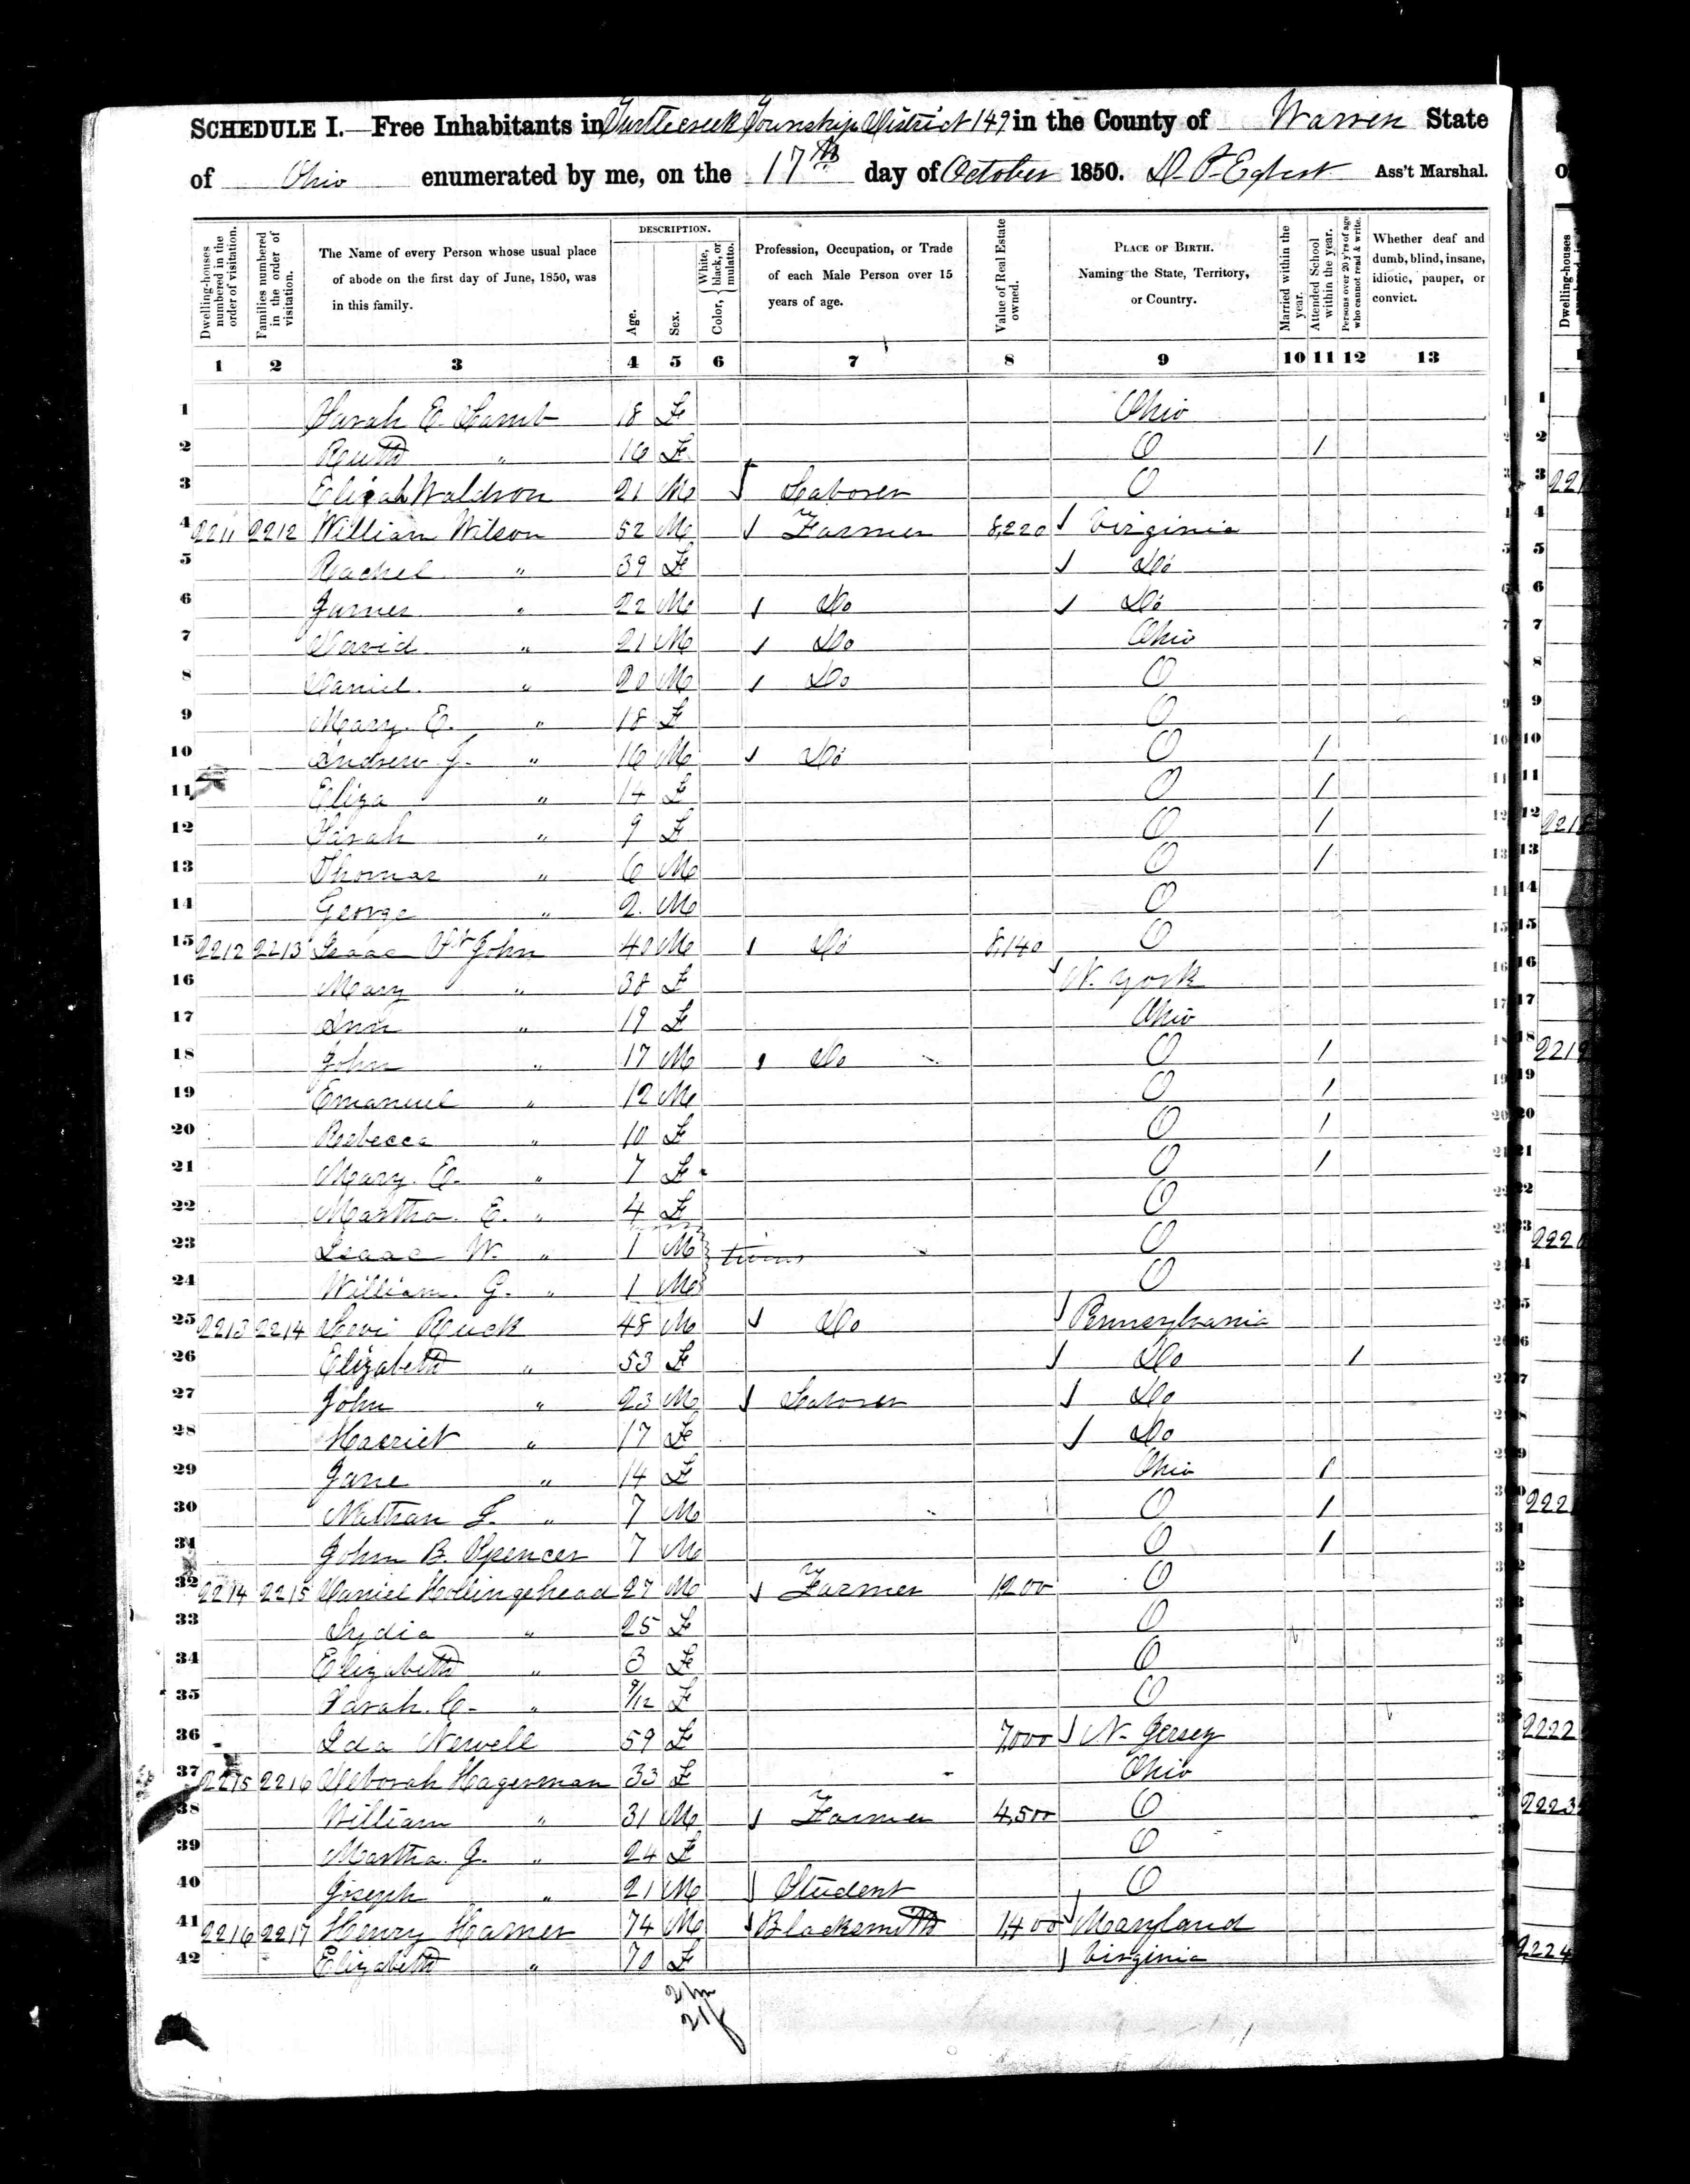 SCHEDULE I.—Free Inhabitants in Turtlecreek Township District 149 in the County of Warren State
of Ohio enumerated by me, on the 17th day of October 1850. Ass't Marshal.
Dwelling-houses numbered in the order of visitation.
Families numbered in the order of visitation.
The Name of every Person whose usual place of abode on the first day of June, 1850, was in this family.
DESCRIPTION.
Age.
Sex.
Color, { White, black, or mulatto.
Profession, Occupation, or Trade of each Male Person over 15 years of age.
Value of Real Estate owned.
PLACE OF BIRTH. Naming the State, Territory, or Country.
Married within the year.
Attended School within the year.
Persons over 20 y'rs of age who cannot read & write.
Whether deaf and dumb, blind, insane, idiotic, pauper, or convict.
1 2 3 4 5 6 7 8 9 10 11 12 13
1 Sarah E. Lamb 18 F Ohio
2 Ruth " 16 F O 1
3 Elijah Waldron 21 M Laborer O
4 2211 2212 William Wilson 52 M Farmer 8,220 Virginia
5 Rachel " 39 F Do
6 James " 22 M Do Do
7 David " 21 M Do Ohio
8 Daniel " 20 M Do O
9 Mary E. " 18 F O
10 Andrew J. " 16 M Do O 1
11 Eliza " 14 F O 1
12 Sarah " 9 F O 1
13 Thomas " 6 M O 1
14 George " 2 M O
15 2212 2213 Isaac St John 40 M Do 8,140 O
16 Mary " 38 F N. York
17 Ann " 19 F Ohio
18 John " 17 M Do O 1
19 Emanuel " 12 M O 1
20 Rebecca " 10 F O 1
21 Mary E. " 7 F O 1
22 Martha E. " 4 F O
23 Isaac W. " 1 M } twins O
24 William G. " 1 M O
25 2213 2214 Levi Ruck 48 M Do Pennsylvania
26 Elizabeth " 53 F Do 1
27 John " 23 M Laborer Do
28 Harriet " 17 F Do
29 Jane " 14 F Ohio 1
30 Nathan L. " 7 M O 1
31 John B. Spencer 7 M O 1
32 2214 2215 Daniel Hollingshead 27 M Farmer 1,200 O
33 Lydia " 25 F O
34 Elizabeth " 3 F O
35 Sarah C. " 9/12 F O
36 Ida Newell 59 F 7,000 N. Jersey
37 2215 2216 Deborah Hagerman 33 F Ohio
38 William " 31 M Farmer 4,500 O
39 Martha J. " 24 F O
40 Joseph " 21 M Student O
41 2216 2217 Henry Hamer 74 M Blacksmith 1,400 Maryland
42 Elizabeth " 70 F Virginia
21/m
21/f